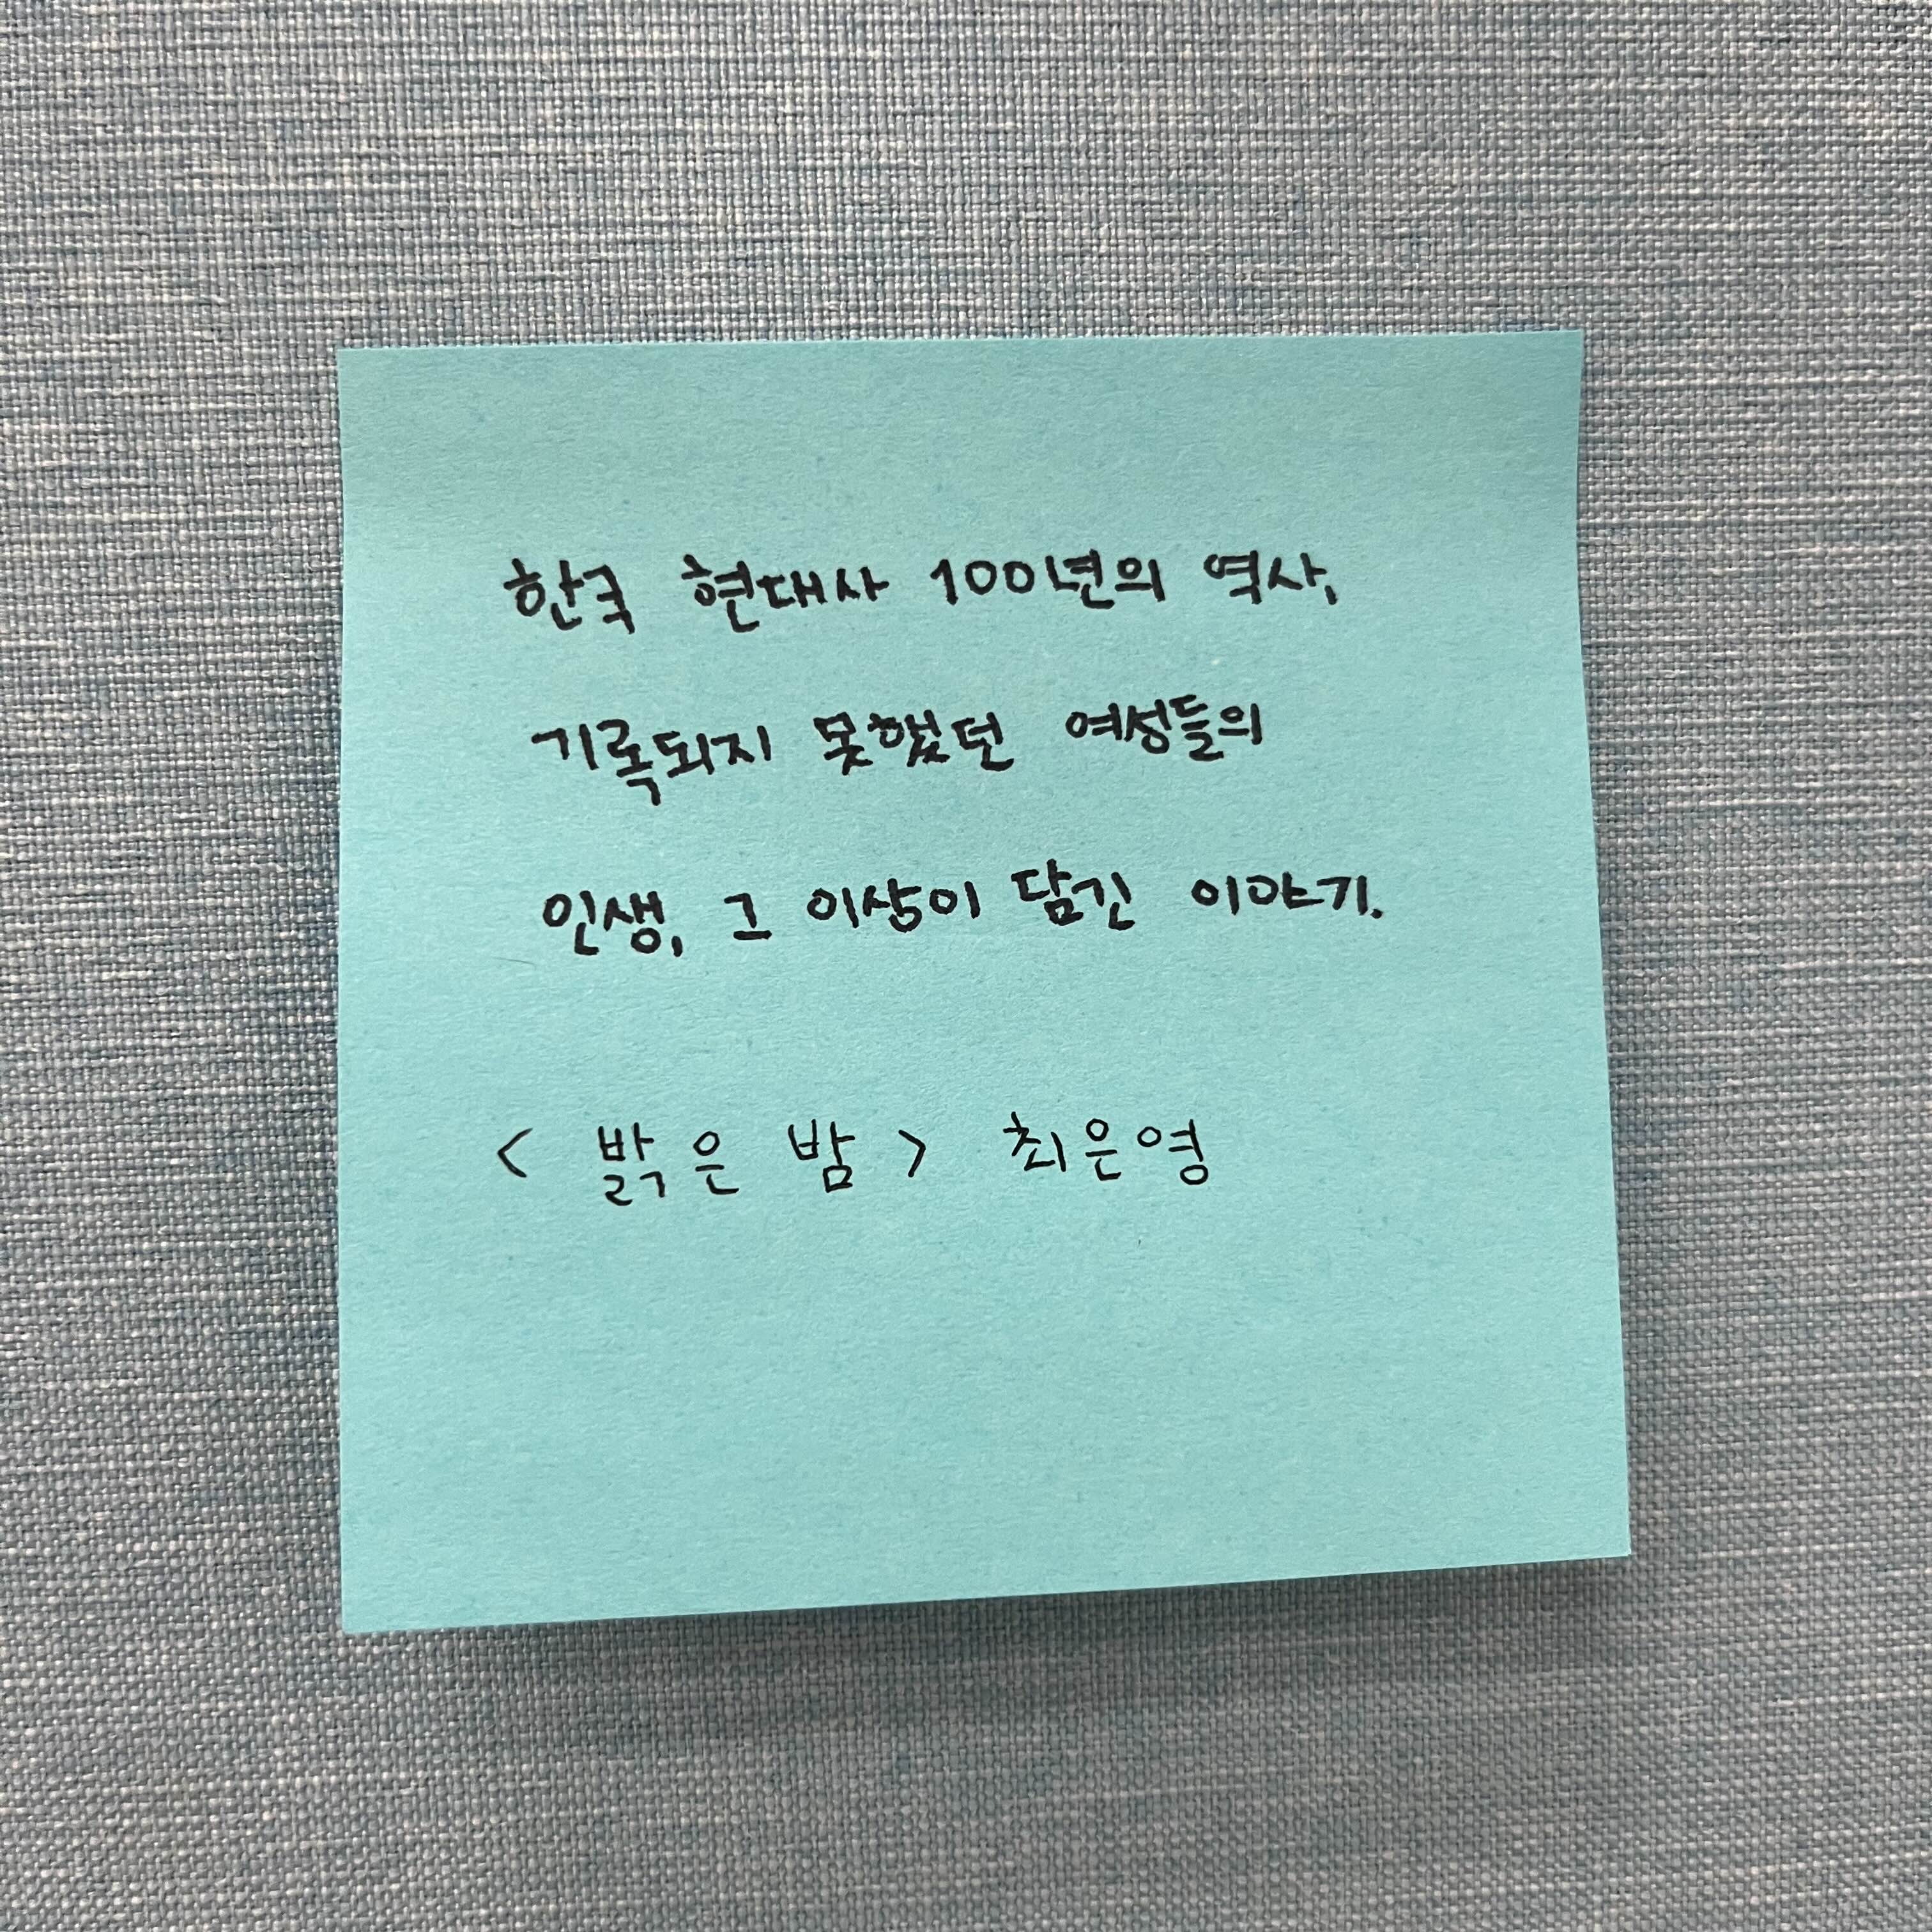 한국 현대사 100년의 역사,
기록되지 못했던 여성들의
인생, 그 이상이 담긴 이야기.
< 밝은 밤 > 최은영